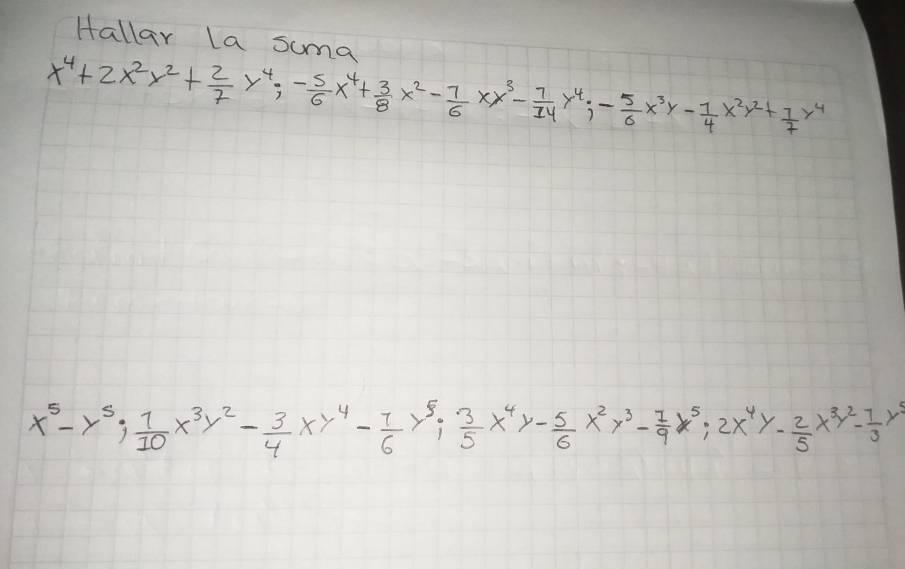 Hallar la suma
x⁴+2x²y²+2/7 y⁴; -5/6 x⁴+3/8 x²-1/6 xy³-1/14 y⁴; -5/6 x³y-1/4 x²y²+1/7 y⁴
x⁵-y⁵; 1/10 x³y²-3/4 xy⁴-1/6 y⁵; 3/5 x⁴y-5/6 x²y³-1/9 x⁵; 2x⁴y-2/5 x³y²-1/3 y⁵